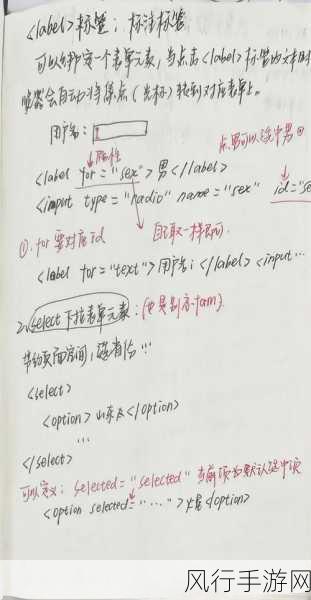 <label>标签：标注标签
可以绑定一个表单元素，当点击<label>标签的文本时
览器会自动将焦点（光标）转到对应表单上。
用户名：
点男可以选中男
属性
<label for="sex">男</label>
<input type="radio" name="sex" id="se
①. for 要对应 id
自取一样即可.
<label for="text">用户名：</label> <input…
2. select 下拉表单元素：
节约页面空间，
<select>
<option>山东</option>
…
</select>
可以定义：selected="selected" 当前项为默认选中项
<option selected="……"><option>
风行手游网